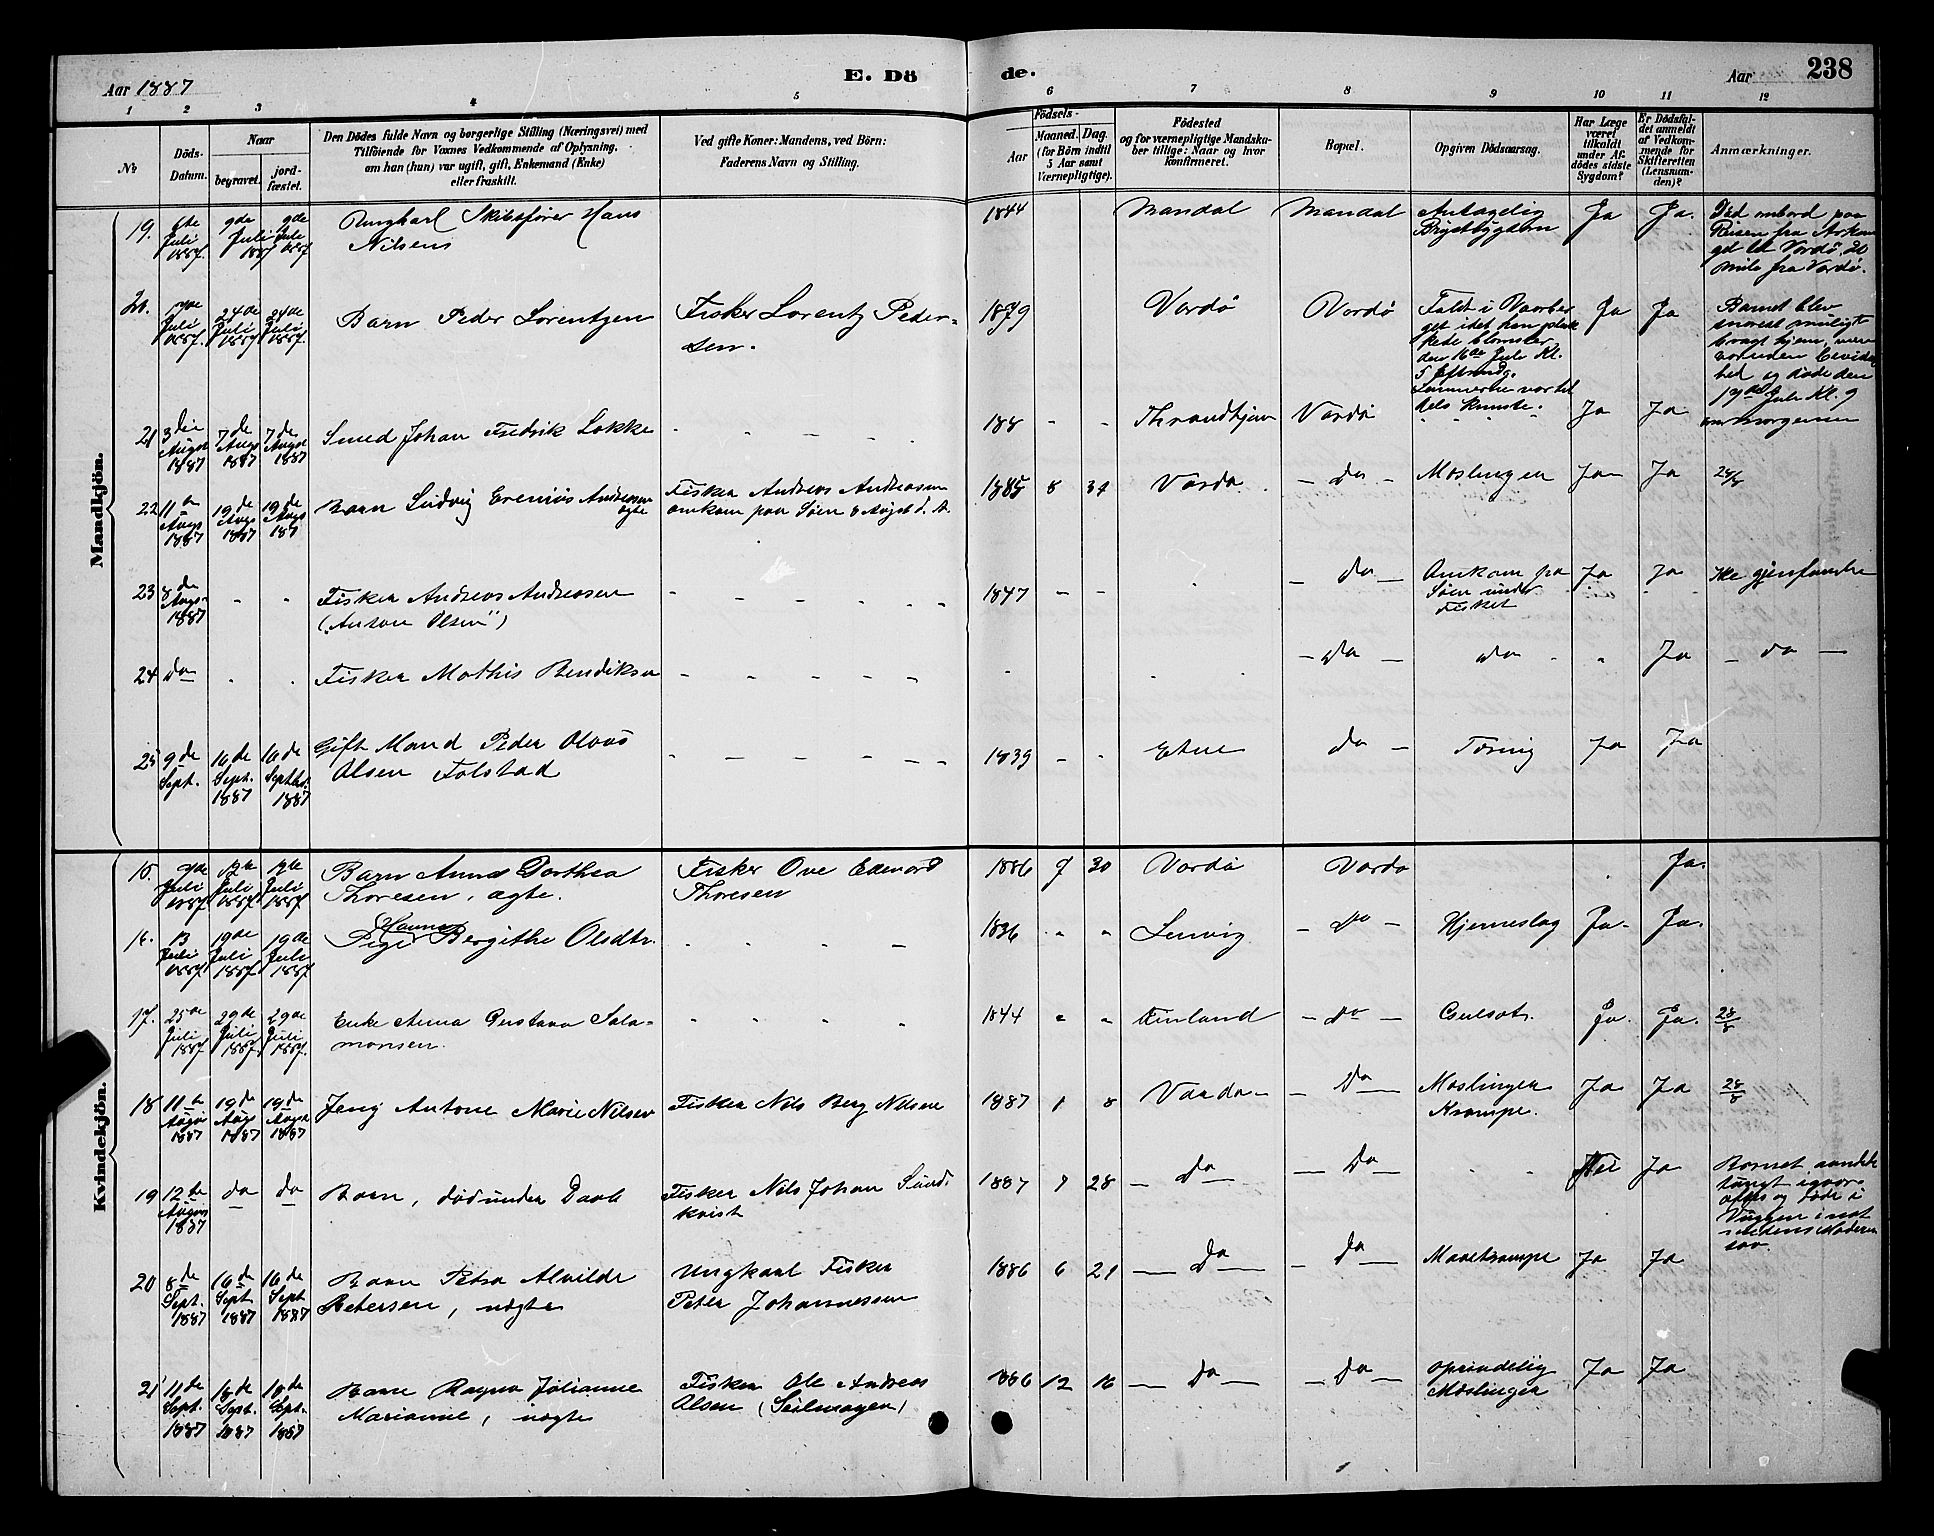 Aar 1887
E. Dö
de.
Aar
238
1 2 3 4 5 6 7 8 9 10 11 12
No
Döds-
Datum.
Naar
begravet.
jord-
fæstet.
Den Dödes fulde Navn og borgerlige Stilling (Næringsvei) med
Tilföiende for Voxnes Vedkommende af Oplysning,
om han (hun) var ugift, gift, Enkemand (Enke)
eller fraskilt.
Ved gifte Koner: Mandens, ved Börn:
Faderens Navn og Stilling.
Födsels-
Aar
Maaned. Dag.
(for Börn indtil
5 Aar samt
Værnepligtige).
Födested
og for værnepligtige Mandska-
ber tillige: Naar og hvor
konfirmeret.
Bopæl.
Opgiven Dödsaarsag.
Har Læge
været
tilkaldt
under Af-
dödes sidste
Sygdom?
Er Dödsfal-
det anmeldt
af Vedkom-
mende for
Skifteretten
(Lensman-
den)?
Anmærkninger.
Mandkjön.
19. 6te Juli 1887. 9de Juli 1887 9de Juli 1887 Ungkarl Skibsfører Hans
Nilsens
1844 Mandal Mandal Antagelig
Brystsygdom Ja Ja. Død ombord paa
Reisen fra Arkan
gel til Vardö, 20
mile fra Vardö.
20. Juli 1887. 24de Juli 1887 24de Juli 1887. Barn Peder Lorentzen Fisker Lorentz Peder-
sen.
1879 Vardö Vardö Faldt i Vaarber
get idet han pluk
kede blomster
den 16de Juli Kl.
5 Eftermdg.
Lemmerne var til
dels knuste. Ja Ja Barnet blev
snarest muligt
bragt hjem, men
var uden bevidst
hed og døde den
17de Juli Kl. 9
om morgenen
21 3die August 1887 7de Augs 1887 7de August 1887 Smed Johan Fredrik Løkke - - - -
188 - - Throndhjem Vardö Ja Ja
22 11te Augs 1887 19de Augs 1887 19de Augs 1887 Barn Ludvig Erenius Andreasen
ægte Fisker Andreas Andreasen
omkom paa Søen 8 Augst d. A.
1885 8 31 Vardö - do - Meslinger Ja Ja 28/8
23 8de Augs 1887 - - Fisker Andreas Andreasen
("Anton Olsen") - - - - - -
1847 - - - do - Omkom paa
Søen under
Fisket Ja Ja Ike gjenfundne
24 do - - Fisker Mathis Bendiksen - - - - -
- do - do - - Ja - do -
25 9de Sept. 16de Sept. 1887 16de Septbr. 1887 Gift Mand Peder Olaus
Olsen Folstad - - - - - -
1839 - - Etne do - Tæring Ja Ja
Kvindekjön.
15. Juli 1887. 12te Juli 1887. 12te Juli 1887. Barn Anna Dorthea
Thoresen, ægte. Fisker Ove Edevard
Thoresen
1886 7 30 Vardö Vardö Ja.
16. 13 Juli 1887. 19de Juli 1887. 19de Juli 1887. Hanna
Pige Bergithe Olsdtr. - - - -
1836 - - Lenvig - do - Hjerneslag Ja. Ja.
17. 25de Juli 1887. 29de Juli 1887. 29de Juli 1887. Enke Anna Gustava Salo-
monsen. - - - -
1844 - - Finland - do - Gulsot. Ja. Ja. 28/8
18 11te August 1887 19de Aug 1887 19de August 1887 Jenj Antone Marie Nilsen Fisker Nils Berg Nilsen
1887 1 8 Vardö - - Do - Meslinger
Krampe. Ja Ja 28/8
19 12de August 1887 do do Barn, død uden Daab Fisker Nils Johan Sund-
kvist
1887 7 28 - do - - Do - - - Nei Ja Barnet aandede
tungt igaar
aftes og døde i
Vuggen i nat
medens Moderen
sov.
20 8de Sept. 1887 16de Sept 1887 16de Sept 1887 Barn Petra Alvilde
Petersen, uægte Ungkarl Fisker
Peter Johannessen
1886 6 21 - Do - - Do - Mavekrampe Ja Ja
21 11de Sept. 1887 18de Sept. 1887 18de Sept. 1887 Barn Ragna Julianne
Marianne, uægte Fisker Ole Andreas
Olsen (Seilmager)
1886 12 16 - Do - - Do - oprindelig
Meslinger Ja Ja